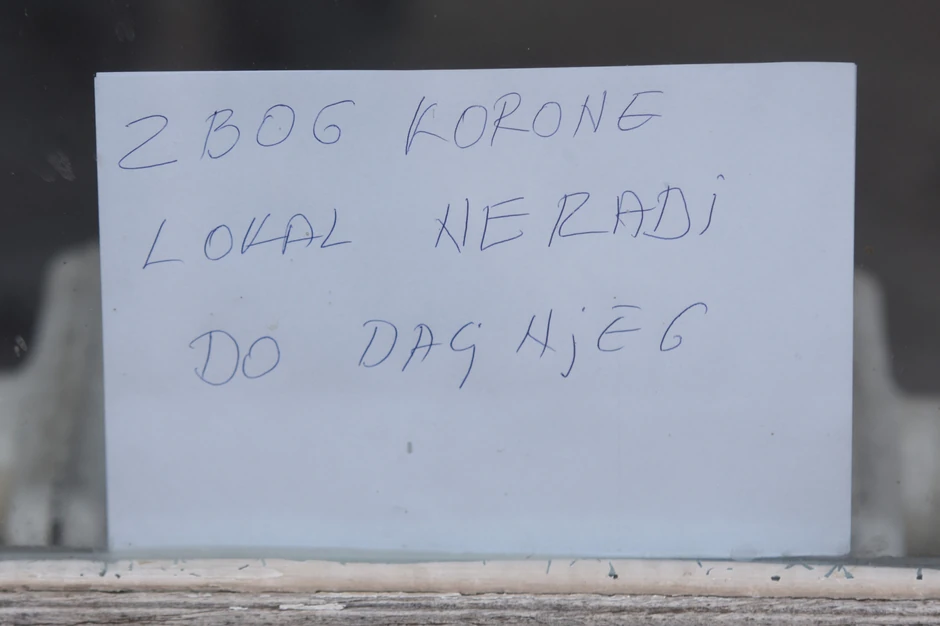 ZBOG KORONE
LOKAL NE RADi
DO DAGNjEG